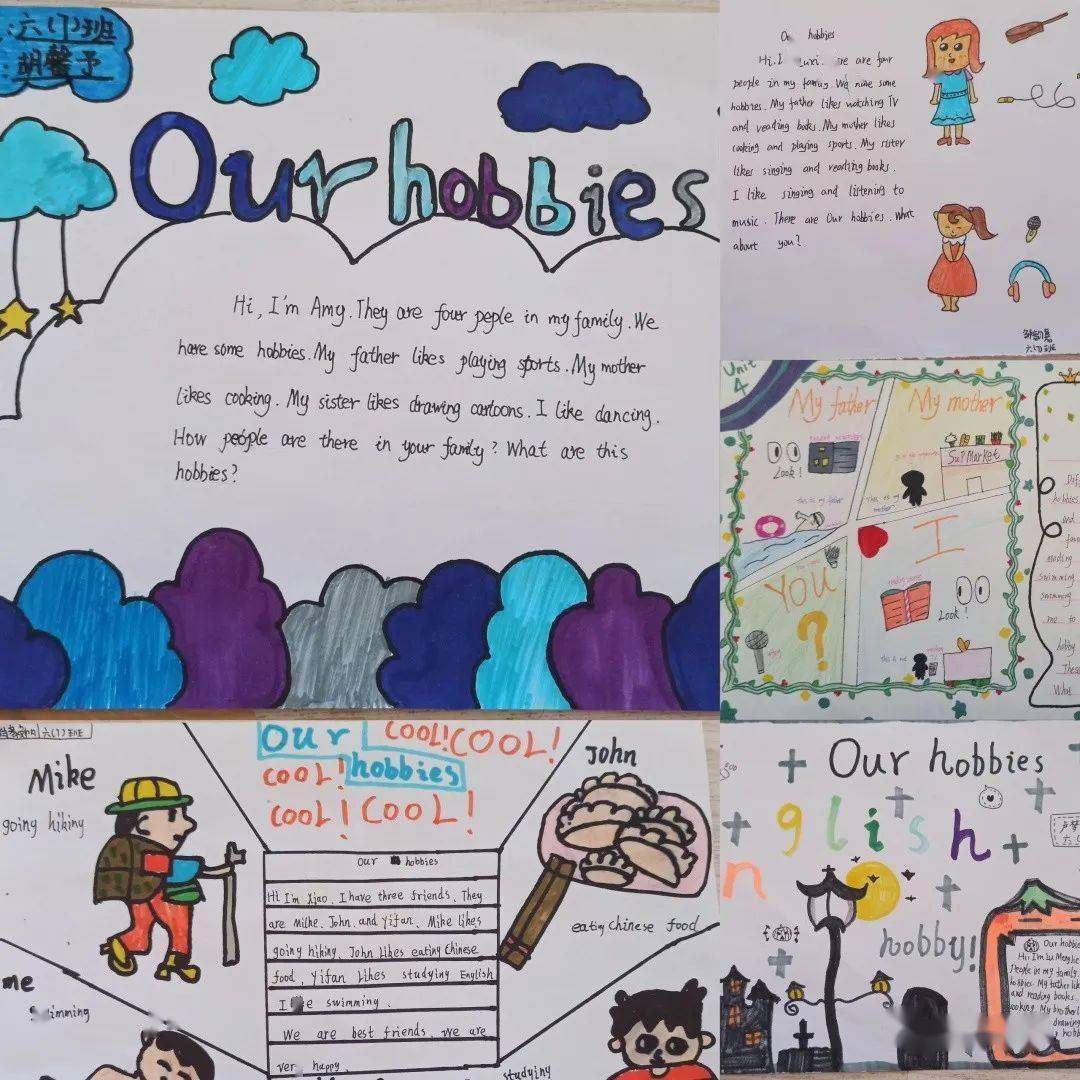 六(1)班
胡馨予
Our hobbies
Hi, I'm Amy. They are four peple in my family. We
have some hobbies. My father likes playing sports. My mother
likes cooking. My sister likes drawing cartoons. I like dancing.
How people are there in your family? What are this
hobbies?
hobbies
Hi. I are four
people in my family. We some
hobbies. My father likes watching TV
and reading books. My mother likes
cooking and playing sports. My sister
likes singing and reading books.
I like singing and listening to
music. There are Our hobbies. What
about you?
六(1)班
Unit
4
My father
My mother
Look!
SuPMarket
This is my father
This is my
mother
I
YOU
?
Look!
this is me
hobbies
and
reading
swimming
swimming
me to
hobby
These
What
六(1)班
Mike
going hiking
Our
hobbies
COOL! COOL!
COOL!
COOL! COOL!
John
eating Chinese food
Our hobbies
Hi I'm Xiao. I have three friends. They
are Mike. John. and Yifan. Mike likes
going hiking. John likes eating Chinese
food. Yifan likes studying English
I swimming.
We are best friends. we are
very happy.
me
Swimming
studying
Our hobbies
glish
n
hobby!
Our hobbies
people in my family
hobbies. My father
and reading books.
cooking. My brother
drawing